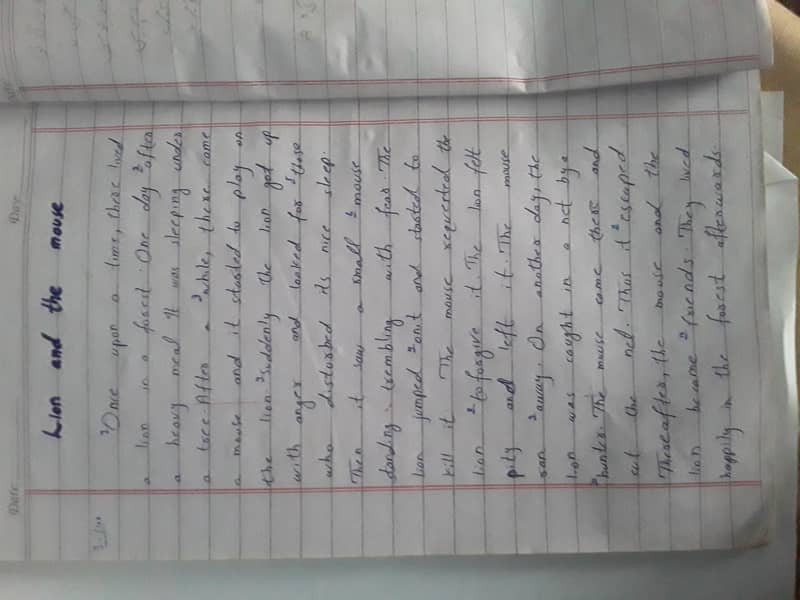 Date
Date
Lion and the mouse
Once upon a time, there lived
a lion in a forest. One day after
a heavy meal It was sleeping under
a tree. After a while, there came
a mouse and it started to play on
the lion. Suddenly the lion got up
with anger and looked for those
who disturbed its nice sleep.
Then it saw a small mouse
standing trembling with fear. The
lion jumped onit and started to
kill it. The mouse requested the
lion to forgive it. The lion felt
pity and left it. The mouse
ran away. On another day, the
lion was caught in a net by a
hunter. The mouse came there and
cut the net. Thus it escaped
Thereafter, the mouse and the
lion became friends. They lived
happily in the forest afterwards.